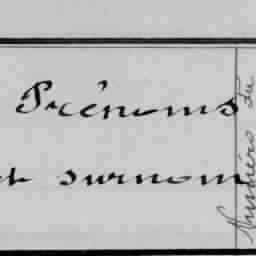 Prénoms
et surnom
Numéro du